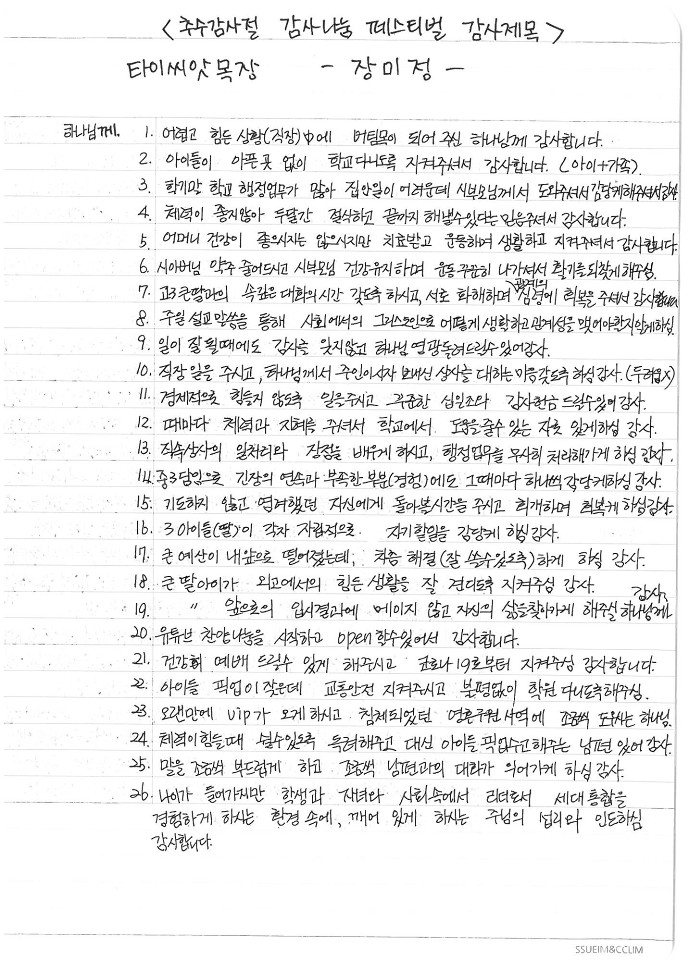 < 추수감사절 감사나눔 페스티벌 감사제목 >
타이씨앗목장 - 장미정 -
하나님께. 1. 어렵고 힘든 상황(직장)中에 버팀목이 되어 주신 하나님께 감사합니다.
2. 아이들이 아픈 곳 없이 학교다니도록 지켜주셔서 감사합니다. (아이+가족)
3. 학기말 학교 행정업무가 많아 집안일이 어려운데 시부모님께서 도와주셔서 감당케해주셔서감사
4. 체력이 좋지않아 두달간 절식하고 끝까지 해낼수있다는 믿음주셔서 감사합니다.
5. 어머니 건강이 좋으시지는 않으시지만 치료받고 운동하며 생활하고 지켜주셔서 감사합니다.
6. 시아버님 약주 줄어드시고 시부모님 건강유지하며 운동 꾸준히 나가셔서 활기를 되찾게해주심.
7. 고3큰딸과의 속깊은 대화의시간 갖도록 하시고, 서로 화해하며 관계의 회복을 주셔서 감사합니다
8. 주일 설교말씀을 통해 사회에서의 그리스도인으로 어떻게 생활하고 관계성을 맺어야할지알게하심
9. 일이 잘 될때에도 감사를 잊지않고 하나님 영광돌려드릴수있어감사.
10. 직장 일을 주시고, 하나님께서 주인이시자 보내신 상사를 대하는 마음갖도록 하심 감사. (두려움X)
11. 경제적으로 힘들지 않도록 일을주시고 꾸준한 십일조와 감사헌금 드릴수있어 감사.
12. 때마다 체력과 지혜를 주셔서 학교에서 도움을줄수 있는 자로 있게하심 감사.
13. 직속상사의 일처리와 장점을 배우게 하시고, 행정업무를 무사히 처리해가게 하심 감사.
14. 중3담임으로 긴장의 연속과 부족한부분(경험)에도 그때마다 하나씩 감당케하심 감사.
15. 기도하지 않고 염려했던 자신에게 돌아볼시간을 주시고 회개하며 회복케 하심감사
16. 3아이들(딸)이 각자 자립적으로 자기할일을 감당케 하심감사.
17. 큰 예산이 내앞으로 떨어졌는데, 차츰 해결(잘 쓸수있도록)하게 하심 감사.
18. 큰 딸아이가 외고에서의 힘든 생활을 잘 견디도록 지켜주심 감사.
19. 〃 앞으로의 입시결과에 메이지 않고 자신의 삶을찾아가게 해주실 하나님께 감사.
20. 유튜브 찬양나눔을 시작하고 open할수있어서 감사합니다.
21. 건강히 예배 드릴수 있게 해주시고 코로나19로부터 지켜주심 감사합니다.
22. 아이들 픽업이 잦은데 교통안전 지켜주시고 불평없이 학원 다니도록해주심.
23. 오랜만에 vip가 오게하시고 침체되었던 영혼구원 사역에 조금씩 도우시는 하나님.
24. 체력이 힘들때 쉴수있도록 독려해주고 대신 아이들 픽업수고해주는 남편 있어 감사.
25. 말을 조금씩 부드럽게 하고 조금씩 남편과의 대화가 되어가게 하심 감사.
26. 나이가 들어가지만 학생과 자녀와 사회속에서 리더로서 세대통합을
경험하게 하시는 환경 속에, 깨어 있게 하시는 주님의 섭리와 인도하심
감사합니다.
SSUEIM&CCLIM